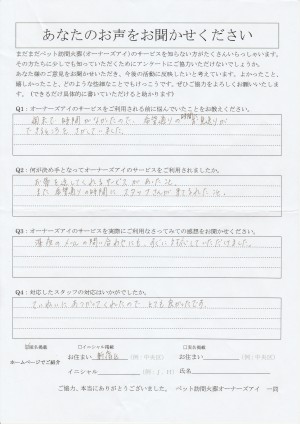 あなたのお声をお聞かせください
まだまだペット訪問火葬(オーナーズアイ)のサービスを知らない方がたくさんいらっしゃいます。
その方たちに少しでも知っていただくためにアンケートにご協力いただけないでしょうか。
あなた様のご意見をお聞かせいただき、今後の活動に反映したいと考えています。よかったこと、
嬉しかったこと、どのような些細なことでもけっこうです。ぜひご協力をよろしくお願いいたします。
(できるだけ具体的に書いていただけると助かります)
Q1:オーナーズアイのサービスをご利用される前に悩んでいたことをお教えください。
時間がなかったので、希望通りの時間に
できるところをさがしていました。
Q2:何が決め手となってオーナーズアイのサービスをご利用されましたか。
お骨を返してくれるサービスがあったこと。
また希望の時間にスタッフさんが来てくれたこと。
Q3:オーナーズアイのサービスを実際にご利用なさってみての感想をお聞かせください。
深夜のメールの問い合わせにも、すぐに対応していただけました。
Q4:対応したスタッフの対応はいかがでしたか。
ていねいにおしえてくれたので とても良かったです。
実名掲載 イニシャル掲載 匿名掲載
ホームページでご紹介
お住まい 新宿区 (例:中央区) お住まい (例:中央区)
イニシャル (例:I.H) 氏名
ご協力、本当にありがとうございました。 ペット訪問火葬オーナーズアイ 一同